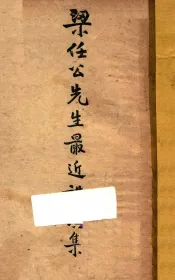 梁任公先生最近講集